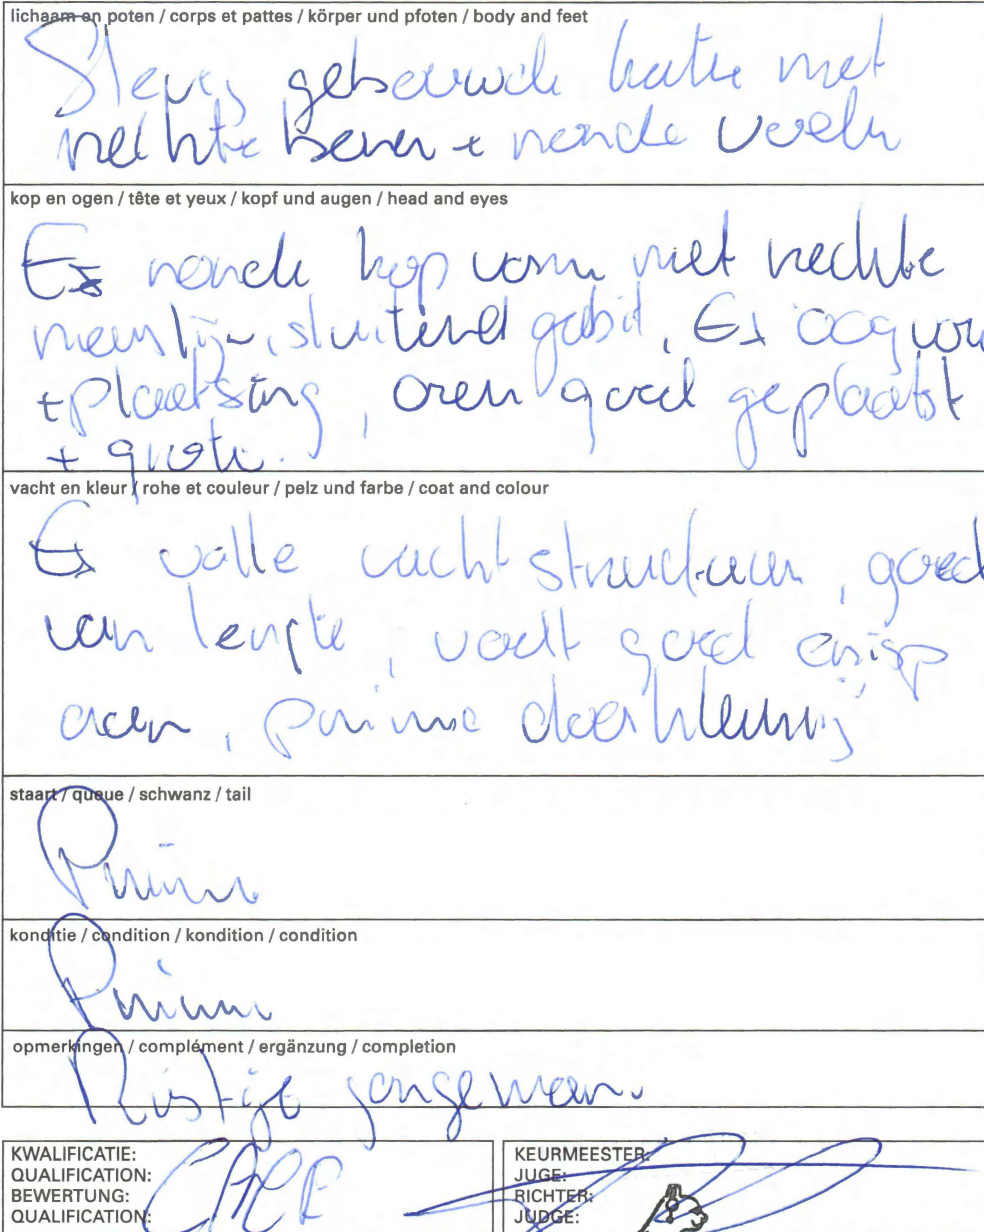 lichaam en poten / corps et pattes / körper und pfoten / body and feet
Stevig gebouwde kater met
rechte benen + ronde voeten
kop en ogen / tête et yeux / kopf und augen / head and eyes
Ex ronde kop vorm met rechte
neus lijn, sluitend gebit, Ex oog vorm
+ plaatsing, oren goed geplaatst
+ grote.
vacht en kleur / rohe et couleur / pelz und farbe / coat and colour
Ex volle vacht structuur, goed
van lengte, voelt goed crisp
aan, prima doorkleuring
staart / queue / schwanz / tail
Prima
konditie / condition / kondition / condition
Prima
opmerkingen / complément / ergänzung / completion
Rustige jongeman.
KWALIFICATIE:
QUALIFICATION:
BEWERTUNG:
QUALIFICATION:
KEURMEESTER:
JUGE:
RICHTER:
JUDGE: